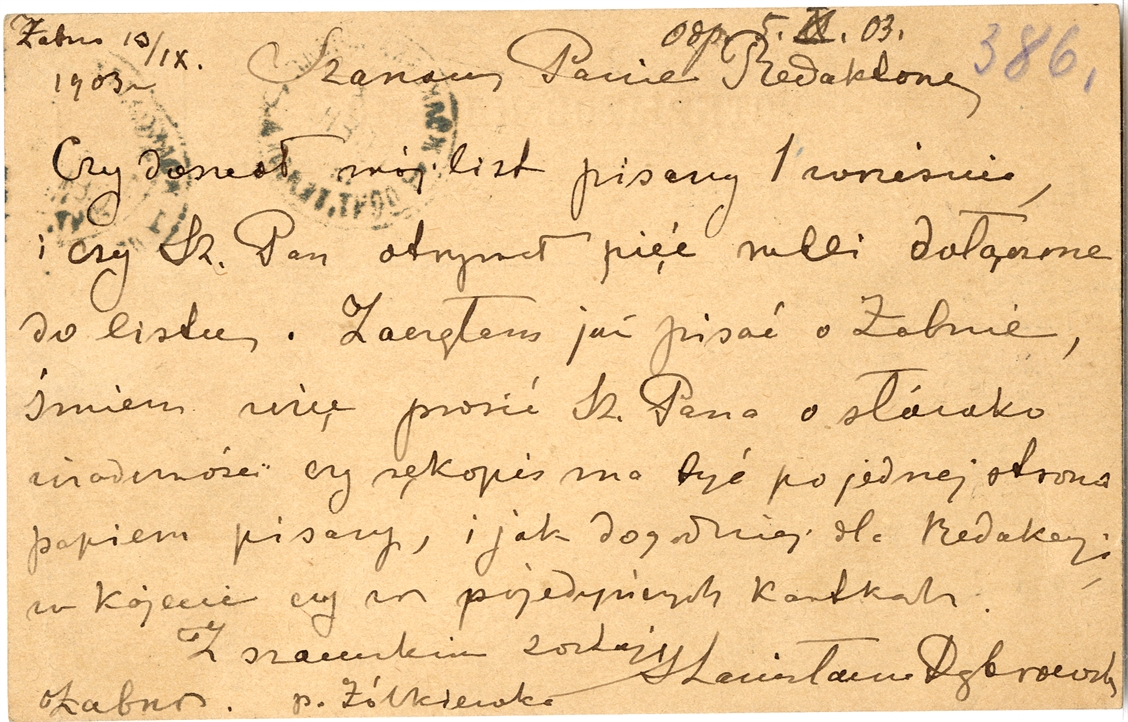 Żabno 10/IX. 1903 r. odp. 5. XI. 03. 386,
Szanowny Panie Redaktorze,
Czy doszedł mój list pisany 1 września,
i czy Sz. Pan otrzymał pięć rubli dołączone
do listu. Zacząłem już pisać o Żabnie,
śmiem więc prosić Sz. Pana o słówko
wiadomości czy rękopis ma być po jednej stronie
papieru pisany, i jak dogodniej dla Redakcyi,
w kajecie czy w pojedyńczych kartkach.
Z szacunkiem zostaję Stanisława Dąbrowska
Żabno. p. Żółkiewka